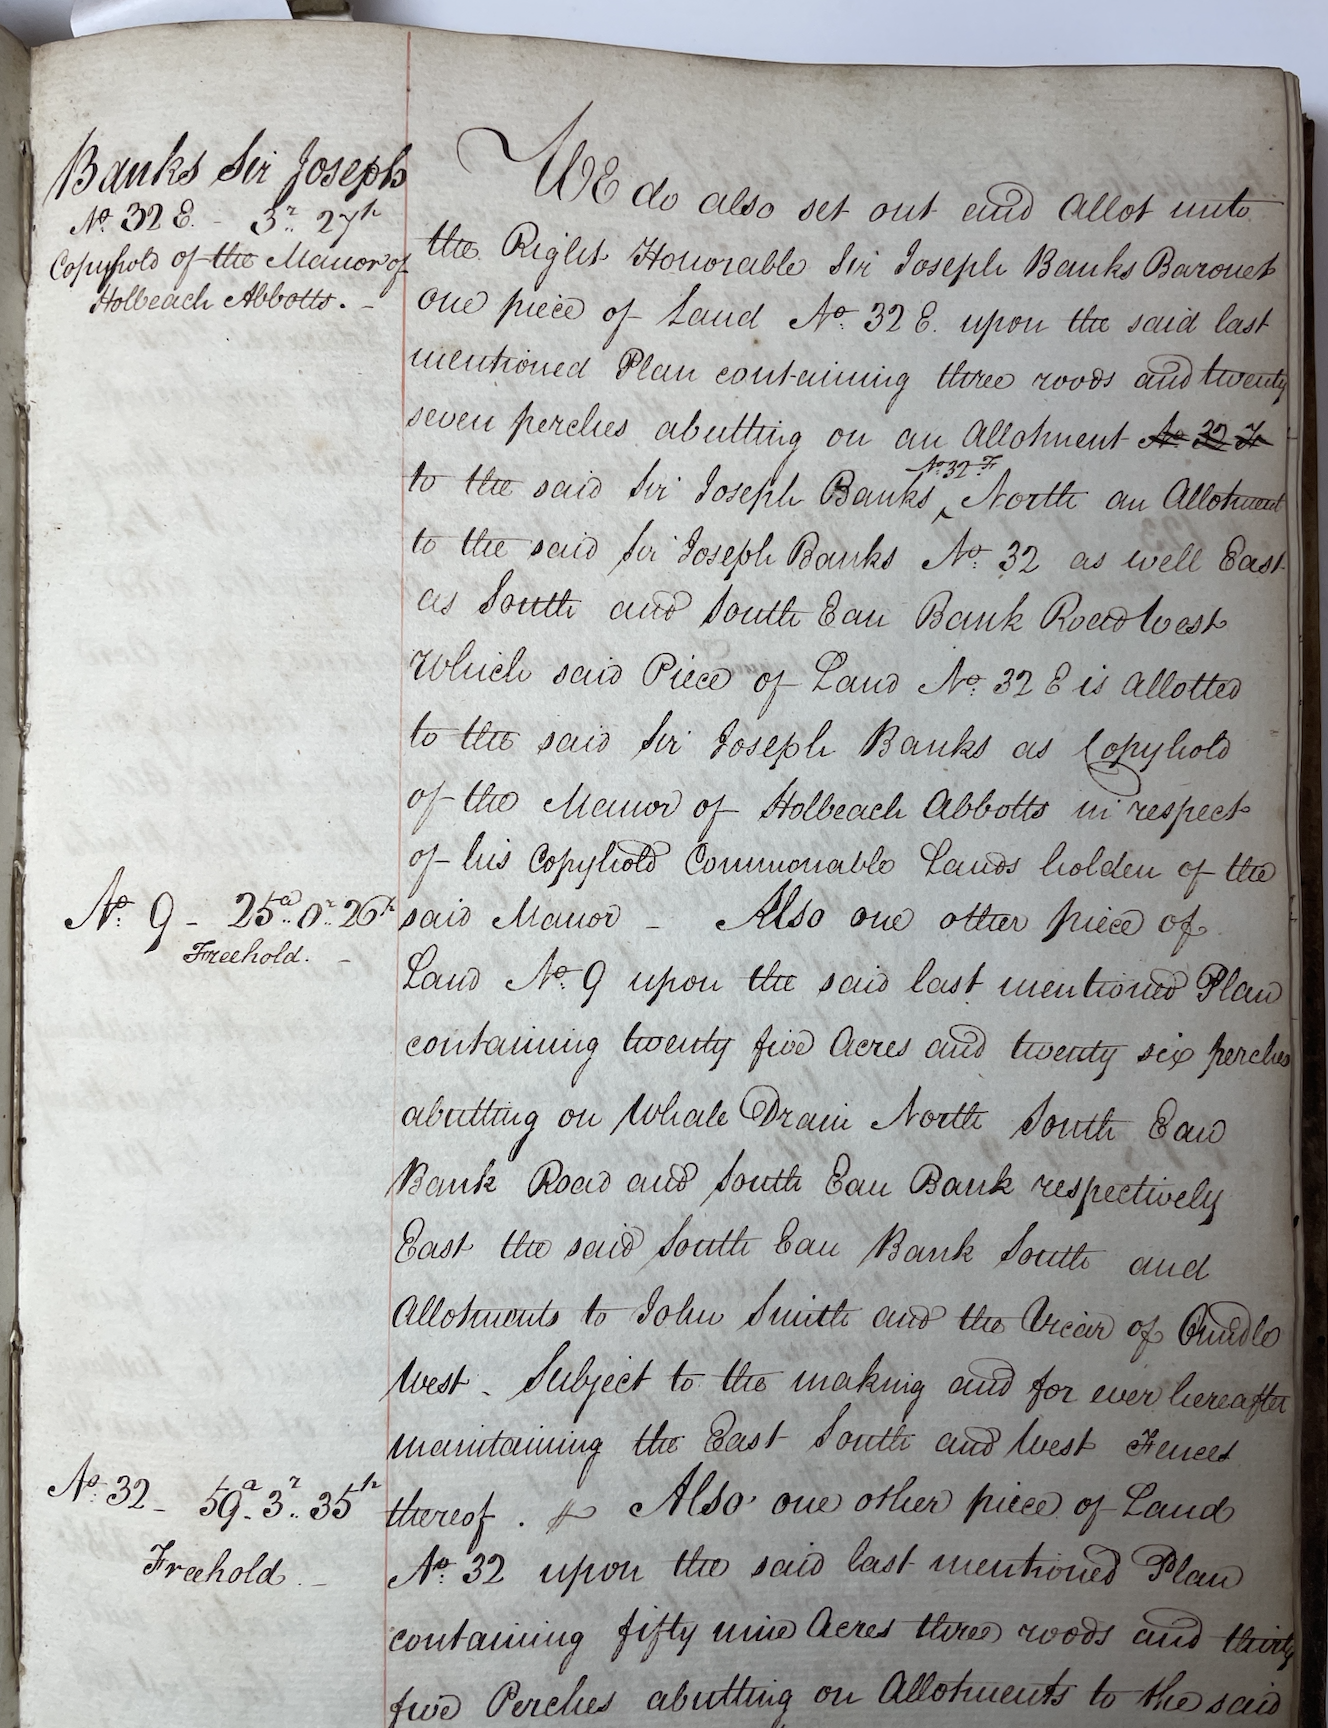 Banks Sir Joseph
No. 32 E. - 3r.. 27p
Copyhold of the Manor of
Holbeach Abbotts. -
WE do also set out and Allot unto
the Right Honorable Sir Joseph Banks Baronet
one piece of Land No. 32 E. upon the said last
mentioned Plan containing three roods and twenty
seven perches abutting on an Allotment No. 32 F
No. 32 F
to the said Sir Joseph Banks ‸ North an Allotment
to the said Sir Joseph Banks No. 32 as well East
as South and South Eau Bank Road West
Which said Piece of Land No. 32 E is Allotted
to the said Sir Joseph Banks as Copyhold
of the Manor of Holbeach Abbotts in respect
of his Copyhold Commonable Lands holden of the
No. 9 - 25a.. 0r.. 26p
Freehold. -
said Manor - Also one other piece of
Land No. 9 upon the said last mentioned Plan
containing twenty five Acres and twenty six perches
abutting on Whale Drain North South Eau
Bank Road and South Eau Bank respectively
East the said South Eau Bank South and
Allotments to John Smith and the Vicar of Oundle
West - Subject to the making and for ever hereafter
maintaining the East South and West Fences
No. 32 - 59a.. 3r.. 35p
Freehold. -
thereof. Also one other piece of Land
No. 32 upon the said last mentioned Plan
containing fifty nine Acres three roods and thirty
five Perches abutting on Allotments to the said